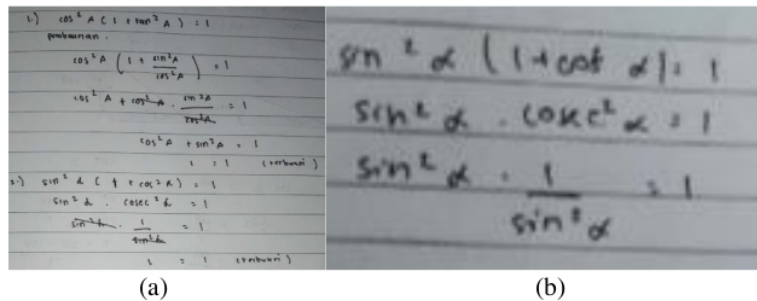 1.) cos² A (1 + tan² A) = 1
pembuktian.
cos² A (1 + sin² A / cos² A) = 1
cos² A + cos² A . sin² A / cos² A = 1
cos² A + sin² A = 1
1 = 1 (terbukti)
2.) sin² α (1 + cos² α) = 1
sin² α . cosec² α = 1
sin² α . 1 / sin² α = 1
1 = 1 (terbukti)
(a)
sin² α (1 + cot α) = 1
sin² α . cosec² α = 1
sin² α . 1 / sin² α = 1
(b)